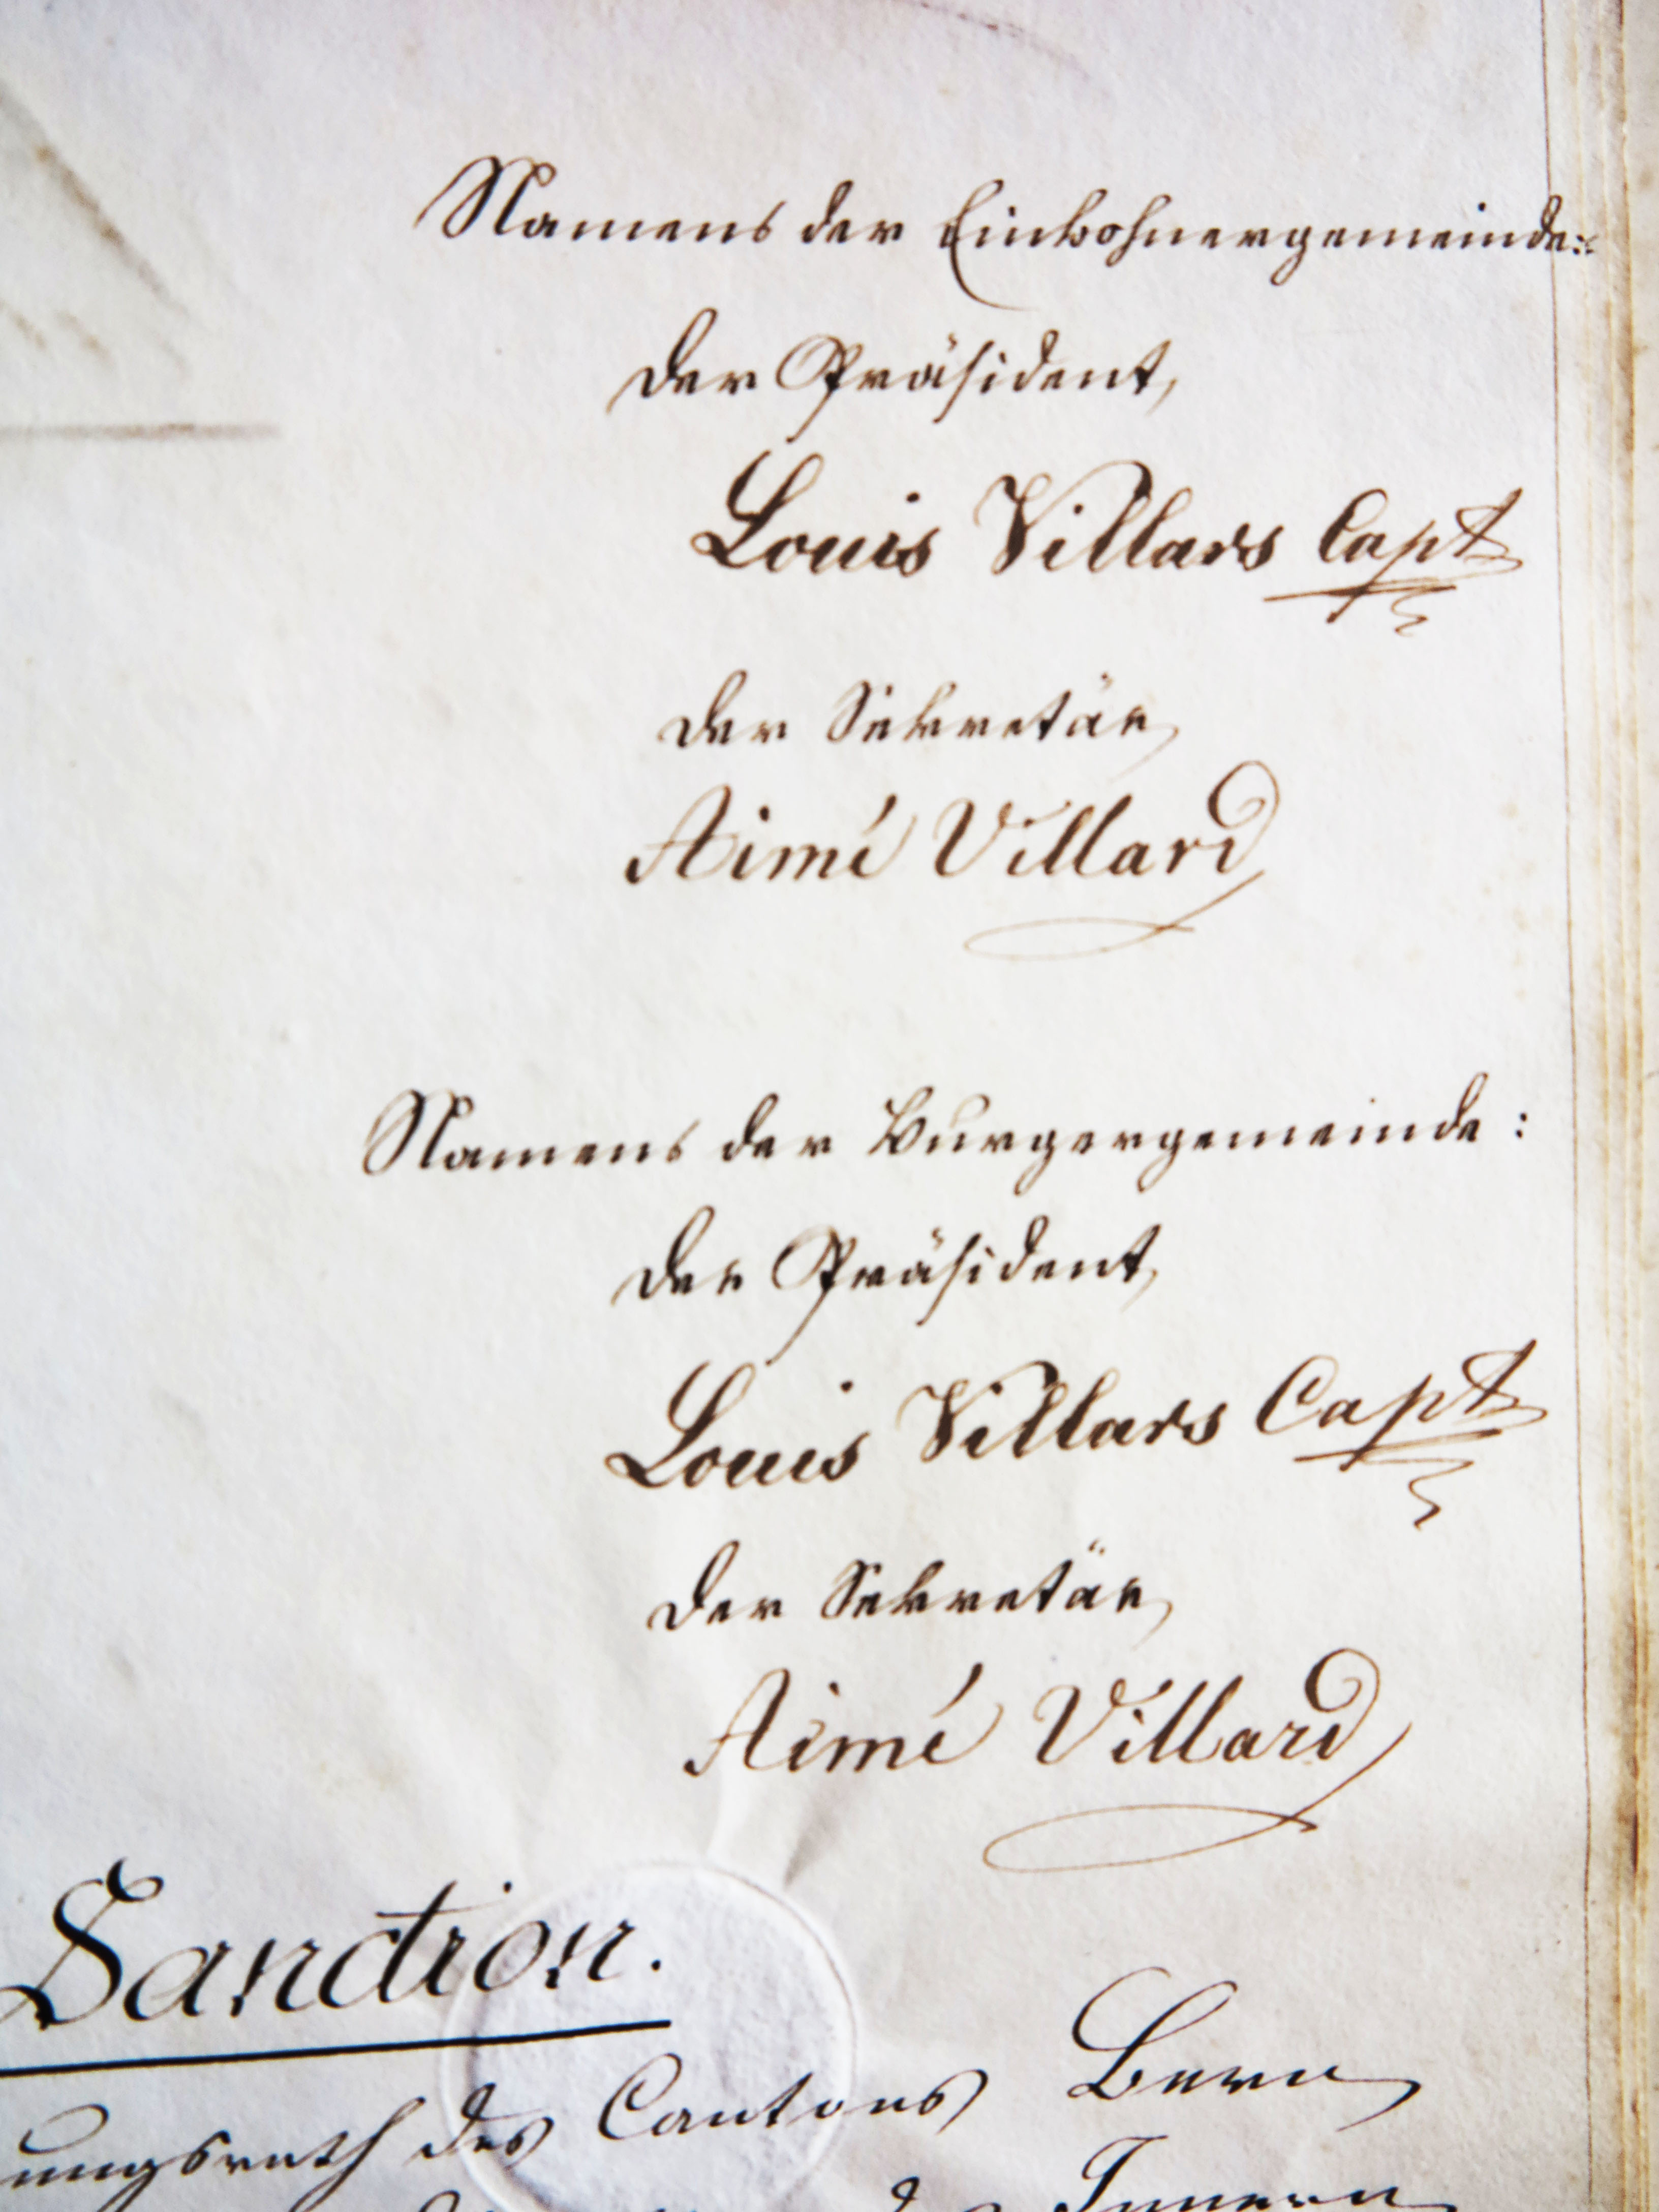 Namens der Einwohnergemeinde:
Der Präsident,
Louis Villars Capt
Der Sekretär,
Aimé Villard
Namens der Burgergemeinde:
Der Präsident,
Louis Villars Capt
Der Sekretär,
Aimé Villard
Sanction.
ungsrath des Cantons Bern
Innern